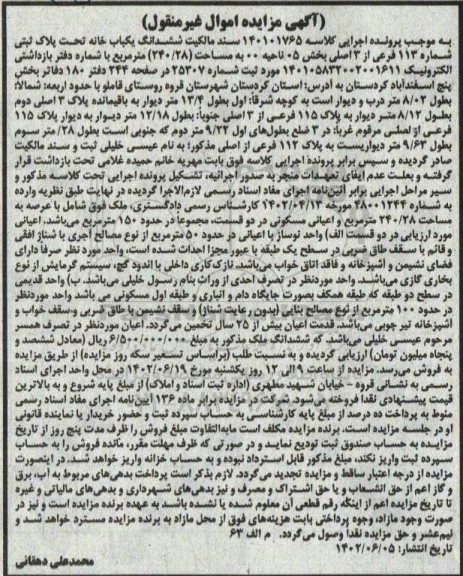 (آگهی مزایده اموال غیرمنقول)
به موجب پرونده اجرایی کلاسه ۱۴۰۱۰۱۷۶۵ سند مالکیت ششدانگ یکباب خانه تحت پلاک ثبتی
شماره ۱۱۳ فرعی از ۳ اصلی بخش ۰۵ ناحیه ۰۰ به مساحت (۲۴۰/۲۸) مترمربع با شماره دفتر بازداشتی
الکترونیک ۱۴۰۱۰۵۸۳۲۰۰۲۰۰۱۶۱۱ مورد ثبت شماره ۲۵۳۰۷ در صفحه ۲۴۳ دفتر ۱۸۰ دفاتر بخش
پنج اسفندآباد کردستان به آدرس: استان کردستان شهرستان قروه روستای قاملو با حدود اربعه: شمالا:
بطول ۸/۰۳ متر درب و دیوار است به کوچه شرقا: اول بطول ۱۳/۴ متر دیوار به باقیمانده پلاک ۳ اصلی دوم
بطول ۸/۱۲ متر دیوار به پلاک ۱۱۵ فرعی از ۳ اصلی جنوبا: بطول ۱۲/۱۸ متر دیوار به دیوار پلاک ۱۱۵
فرعی از اصلی مرقوم غربا: در ۳ ضلع بطول‌های اول ۹/۲۲ متر دوم که جنوبی است بطول ۲۸/ متر سوم
بطول ۹/۶۳ متر دیواریست به پلاک ۱۱۲ فرعی از ۳ اصلی مذکور؛ به نام عیسی خلیلی ثبت و سند مالکیت
صادر گردیده و سپس برابر پرونده اجرایی کلاسه فوق بابت مهریه خانم حمیده غلامی تحت بازداشت قرار
گرفته و بعلت عدم ایفای تعهدات منجر به صدور اجرائیه، تشکیل پرونده اجرایی تحت کلاسه مذکور و
سیر مراحل اجرایی برابر آئین‌نامه اجرای مفاد اسناد رسمی لازم‌الاجرا گردیده در نهایت طبق نظریه وارده
به شماره ۴۸۰۰۱۲۴۴ مورخه ۱۴۰۲/۰۴/۱۳ کارشناس رسمی دادگستری، ملک فوق شامل با عرصه به
مساحت ۲۴۰/۲۸ مترمربع و اعیانی مسکونی در دو قسمت، مجموعاً در حدود ۱۵۰ مترمربع می‌باشد، اعیانی
مورد ارزیابی در دو قسمت الف) واحد نوساز با اعیانی در حدود ۵۰ مترمربع از نوع مصالح آجری با شناژ افقی
و قائم با سقف طاق ضربی در سطح یک طبقه با عبور مجزا احداث شده است، واحد مورد نظر صرفاً دارای
فضای نشیمن و آشپزخانه و فاقد اتاق خواب می‌باشد. نازک‌کاری داخلی با اندود گچ، سیستم گرمایش از نوع
بخاری گازی می‌باشد. واحد موردنظر در تصرف احدی از وراث بنام رسول خلیلی می‌باشد. ب) واحد قدیمی
در سطح دو طبقه که طبقه همکف بصورت جایگاه دام و انباری و طبقه اول مسکونی می باشد واحد موردنظر
در حدود ۱۰۰ مترمربع از نوع مصالح بنایی (بدون رعایت شناژ) و سقف نشیمن با طاق ضربی و سقف خواب و
آشپزخانه تیر چوبی می‌باشد. قدمت اعیان بیش از ۲۵ سال تخمین می‌گردد. اعیان موردنظر در تصرف همسر
مرحوم عیسی خلیلی می‌باشد. که ششدانگ ملک مذکور به مبلغ ۶/۵۰۰/۰۰۰/۰۰۰ ریال (معادل ششصد و
پنجاه میلیون تومان) ارزیابی گردیده و به نسبت طلب (براساس تسعیر سکه روز مزایده) از طریق مزایده
به فروش می‌رسد. مزایده از ساعت ۹ الی ۱۲ روز یکشنبه مورخ ۱۴۰۲/۰۶/۱۹ در محل واحد اجرای اسناد
رسمی به نشانی قروه - خیابان شهید مطهری (اداره ثبت اسناد و املاک) از مبلغ پایه شروع و به بالاترین
قیمت پیشنهادی نقدا فروخته می شود. شرکت در مزایده برابر ماده ۱۳۶ آیین‌نامه اجرای مفاد اسناد رسمی
منوط به پرداخت ده درصد از مبلغ پایه کارشناسی به حساب سپرده ثبت و حضور خریدار یا نماینده قانونی
او در جلسه مزایده است. برنده مزایده مکلف است مابه‌التفاوت مبلغ فروش را ظرف مدت پنج روز از تاریخ
مزایده به حساب صندوق ثبت تودیع نماید و در صورتی که ظرف مهلت مقرر، مانده فروش را به حساب
سپرده ثبت واریز نکند، مبلغ مذکور قابل استرداد نبوده و به حساب خزانه واریز خواهد شد. در اینصورت
مزایده از درجه اعتبار ساقط و مزایده تجدید می‌گردد. لازم بذکر است پرداخت بدهی‌های مربوط به آب، برق
و گاز اعم از حق انشعاب و یا حق اشتراک و مصرف و نیز بدهی‌های شهرداری و بدهی‌های مالیاتی و غیره
تا تاریخ مزایده اعم از اینکه رقم قطعی آن معلوم شده یا نشده باشد به عهده برنده مزایده است و نیز در
صورت وجود مازاد، وجوه پرداختی بابت هزینه‌های فوق از محل مازاد به برنده مزایده مسترد خواهد شد و
نیم‌عشر و حق مزایده نقدا وصول می‌گردد. م الف ۶۳
تاریخ انتشار: ۱۴۰۲/۰۶/۰۵
محمدعلی دهقانی